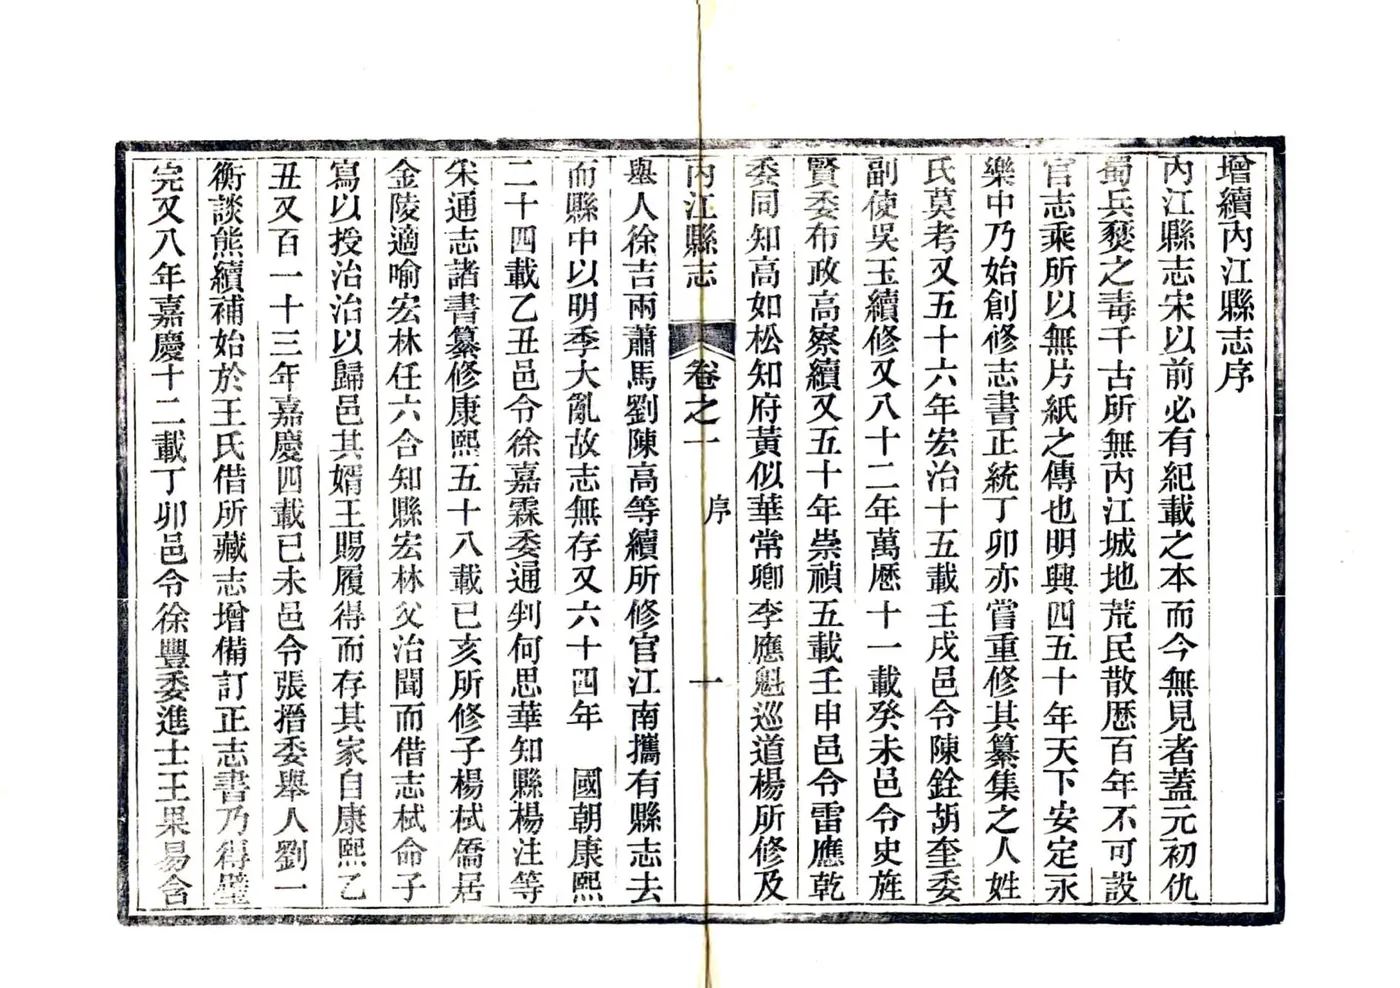 增續内江縣志序
内江縣志宋以前必有紀載之本而今無見者蓋元初仇
蜀兵燹之毒千古所無内江城地荒民散歴百年不可設
官志乘所以無片紙之傳也明興四五十年天下安定永
樂中乃始創修志書正統丁卯亦嘗重修其纂集之人姓
氏莫考又五十六年宏治十五載壬戌邑令陳銓胡奎委
副使吳玉續修又八十二年萬歴十一載癸未邑令史旌
賢委布政高察續又五十年崇禎五載壬申邑令雷應乾
委同知高如松知府黃似華常卿李應魁巡道楊所修及
内江縣志 卷之一 序 一
舉人徐吉兩蕭馬劉陳高等續所修官江南攜有縣志去
而縣中以明季大亂故志無存又六十四年 國朝康熙
二十四載乙丑邑令徐嘉霖委通判何思華知縣楊注等
宋通志諸書纂修康熙五十八載已亥所修子楊栻僑居
金陵適喻宏林任六合知縣宏林父治聞而借志栻命子
寫以授治治以歸邑其婿王賜履得而存其家自康熙乙
丑又百一十三年嘉慶四載已未邑令張搢委舉人劉一
衡談熊續補始於王氏借所藏志增備訂正志書乃得璧
完又八年嘉慶十二載丁卯邑令徐豐委進士王果易含